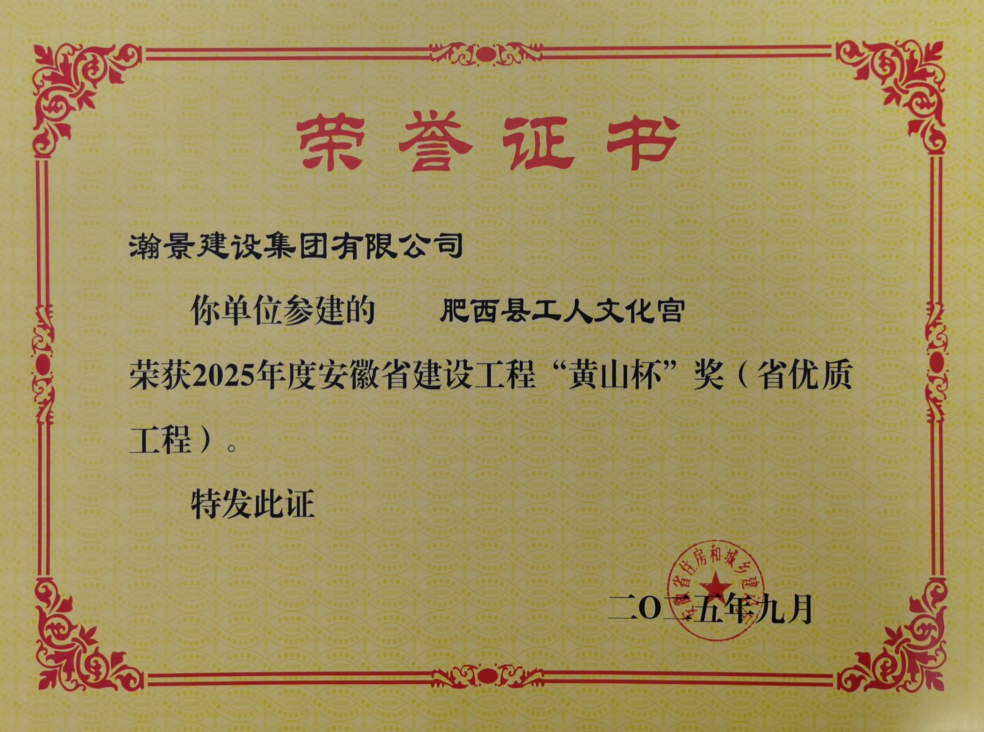 荣誉证书
瀚景建设集团有限公司
你单位参建的 肥西县工人文化宫
荣获2025年度安徽省建设工程“黄山杯”奖（省优质
工程）。
特发此证
安徽省住房和城乡建设
二O二五年九月